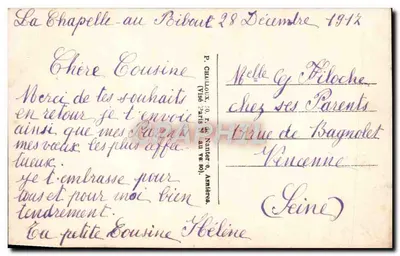 La Chapelle au Riboul 28 Décembre 1912
Chere Cousine
Merci de tes souhaits
en retour je t'envoie
ainsi que mes Parents
mes vœux les plus affec
tueux.
je t'embrasse pour
tous et pour moi bien
tendrement.
Ta petite Cousine Hélène
Melle G Filoche
chez ses Parents
rue de Bagnolet
Vincenne
(Seine)